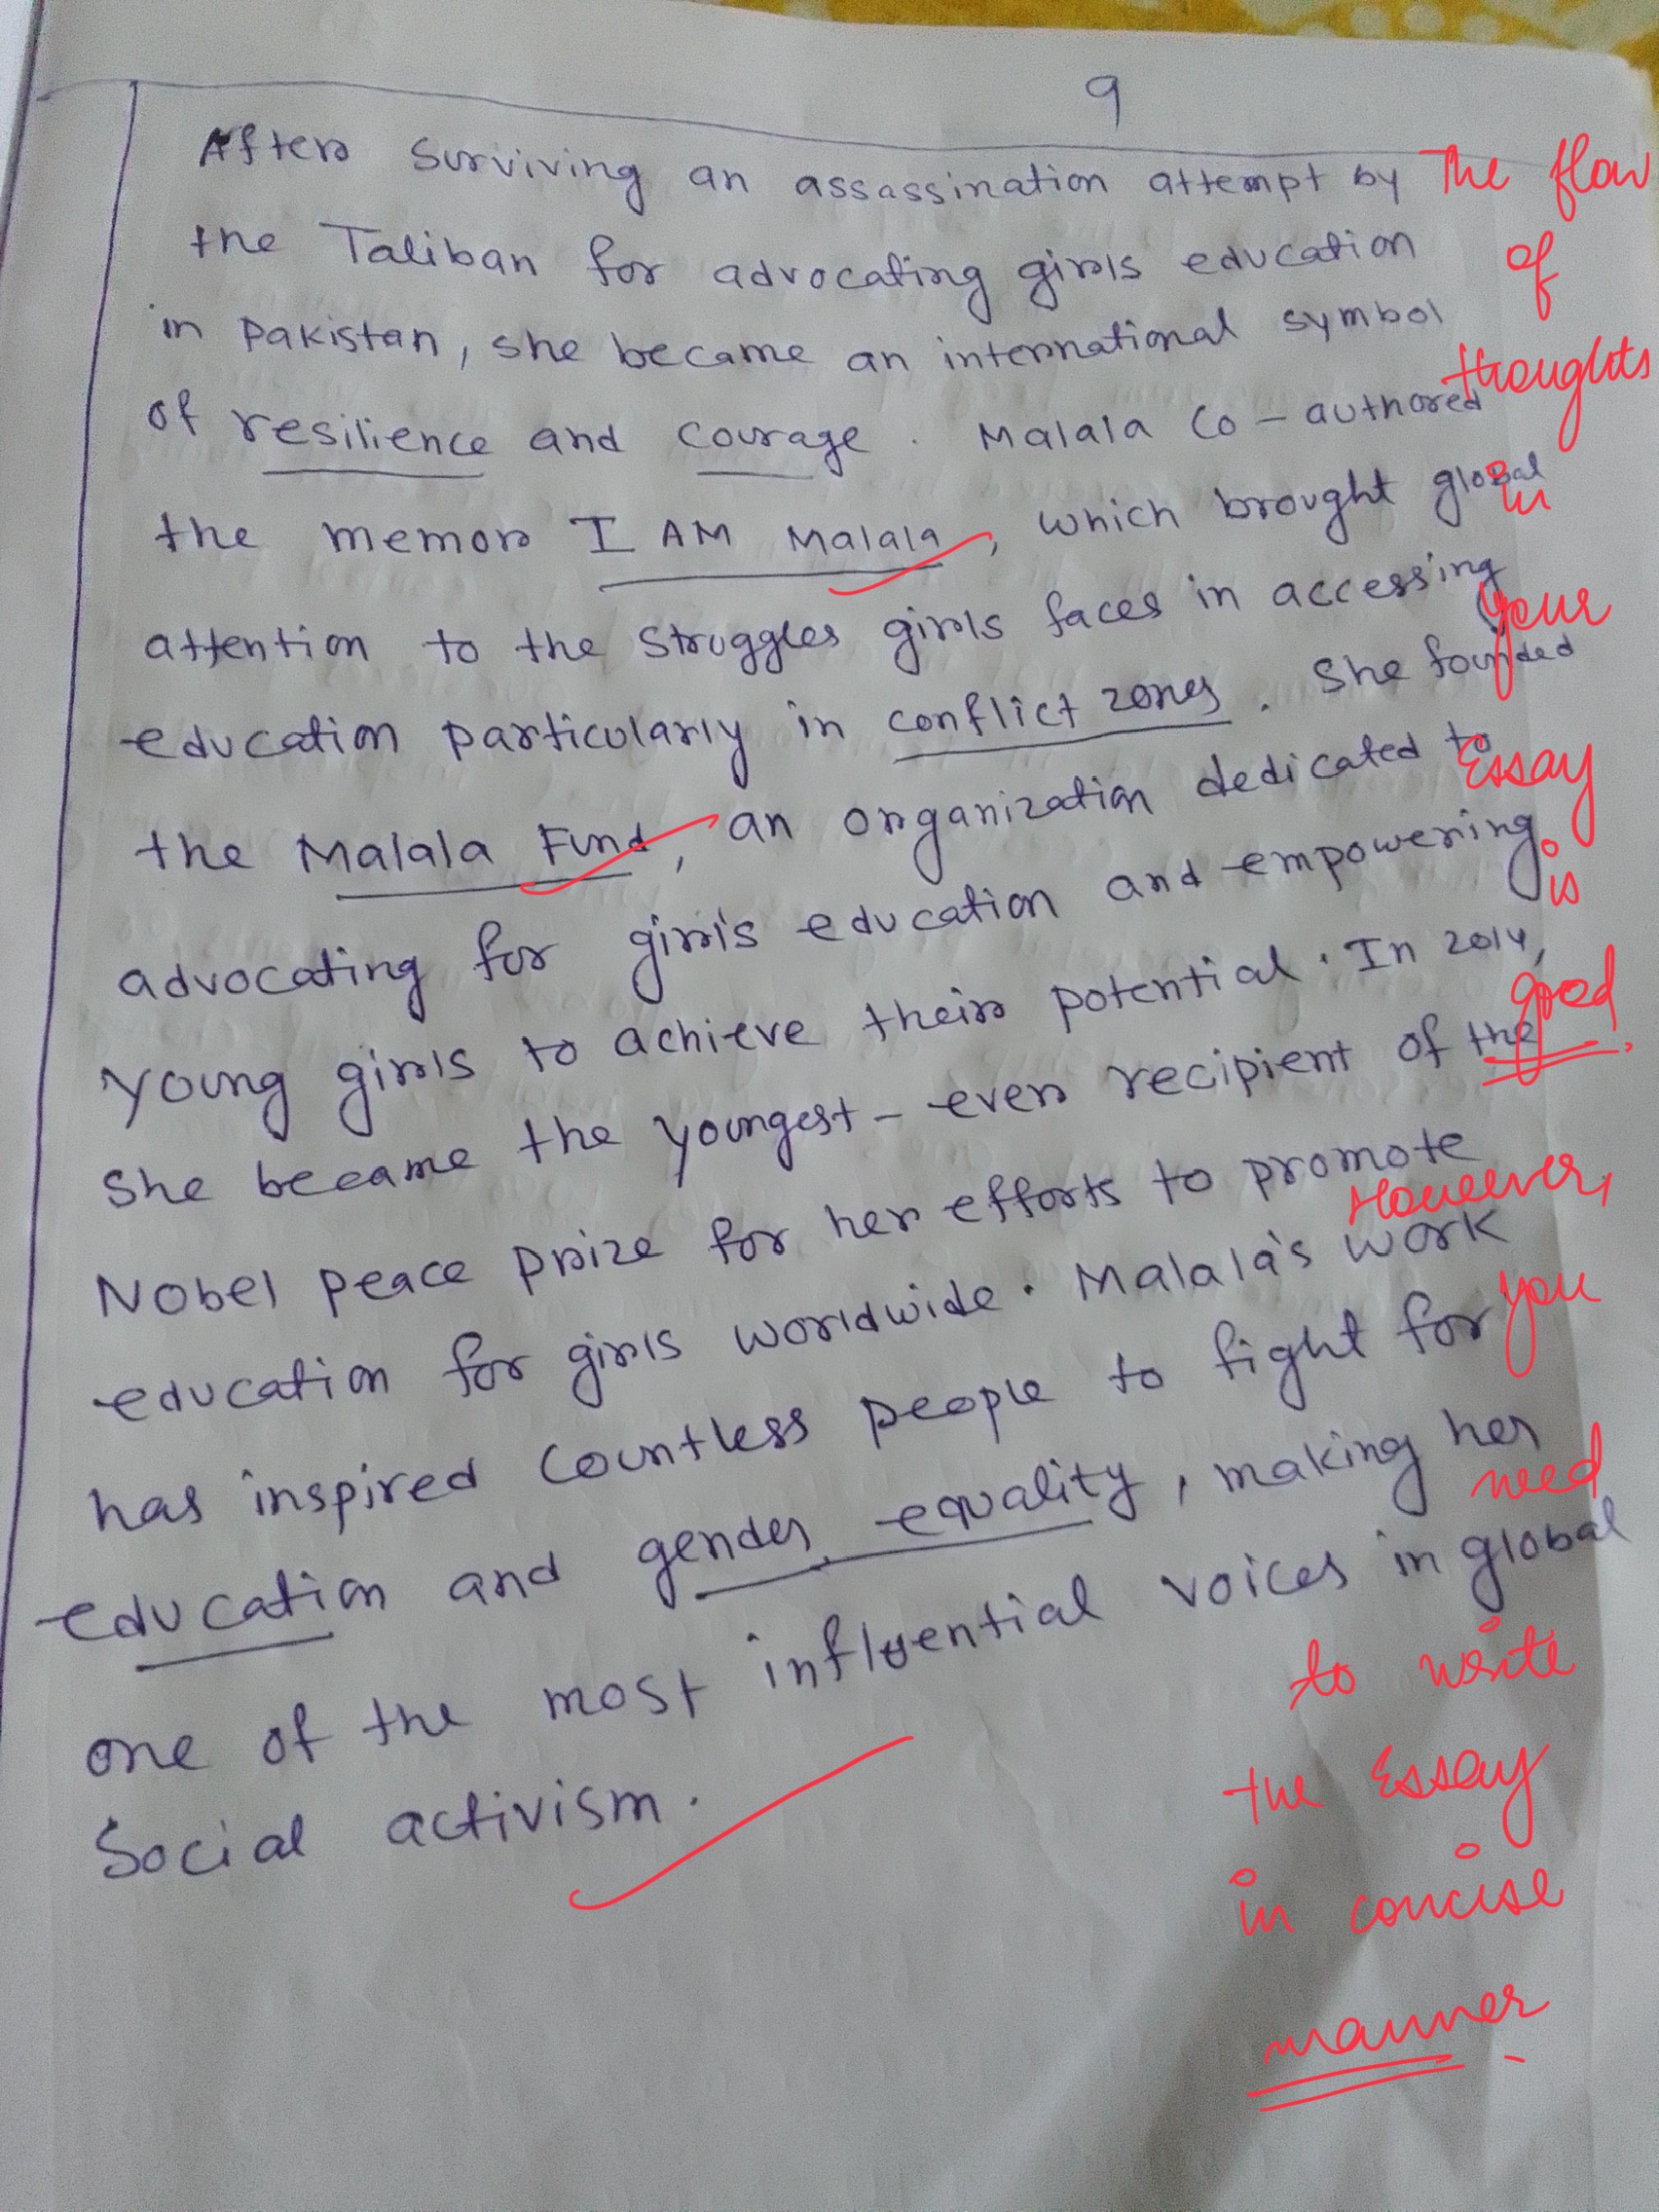 9
After surviving an assassination attempt by
the Taliban for advocating girls education
in pakistan, she became an international symbol
of resilience and courage. Malala Co-authored
the memor I AM Malala, which brought global
attention to the struggles girls faces in accessing
education particularly in conflict zones. She founded
the Malala Fund, an organization dedicated to
advocating for girl's education and empowering
young girls to achieve their potential. In 2014,
she became the youngest-ever recipient of the
Nobel peace prize for her efforts to promote
education for girls worldwide. Malala's work
has inspired countless people to fight for
education and gender equality, making her
one of the most influential voices in global
Social activism.
The flow
of
thoughts
in
your
Essay
is
good.
However,
you
need
to write
the Essay
in concise
manner